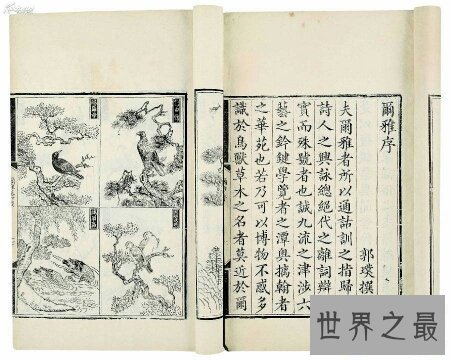 爾雅序
郭璞撰
夫爾雅者所以通詁訓之指歸
詩人之興詠總絕代之離詞辯
實而殊號者也誠九流之津涉六
藝之鈐鍵學覽者之潭奧摛翰者
之華苑也若乃可以博物不惑多
識於鳥獸草木之名者莫近於爾
世界之最